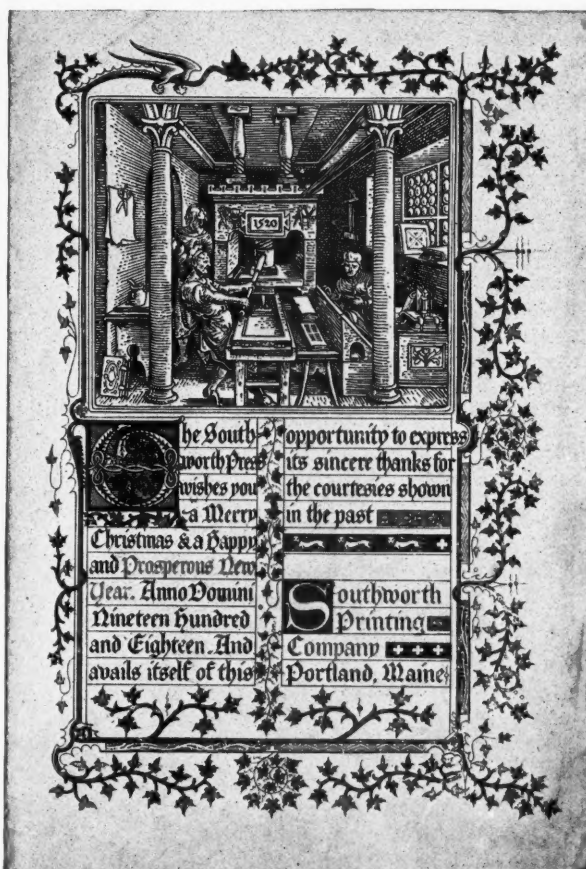 1520
The South-
worth Press
wishes you
a Merry
Christmas & a Happy
and Prosperous New
Year. Anno Domini
Nineteen Hundred
and Eighteen. And
avails itself of this
opportunity to express
its sincere thanks for
the courtesies shown
in the past
Southworth
Printing
Company
Portland, Maine